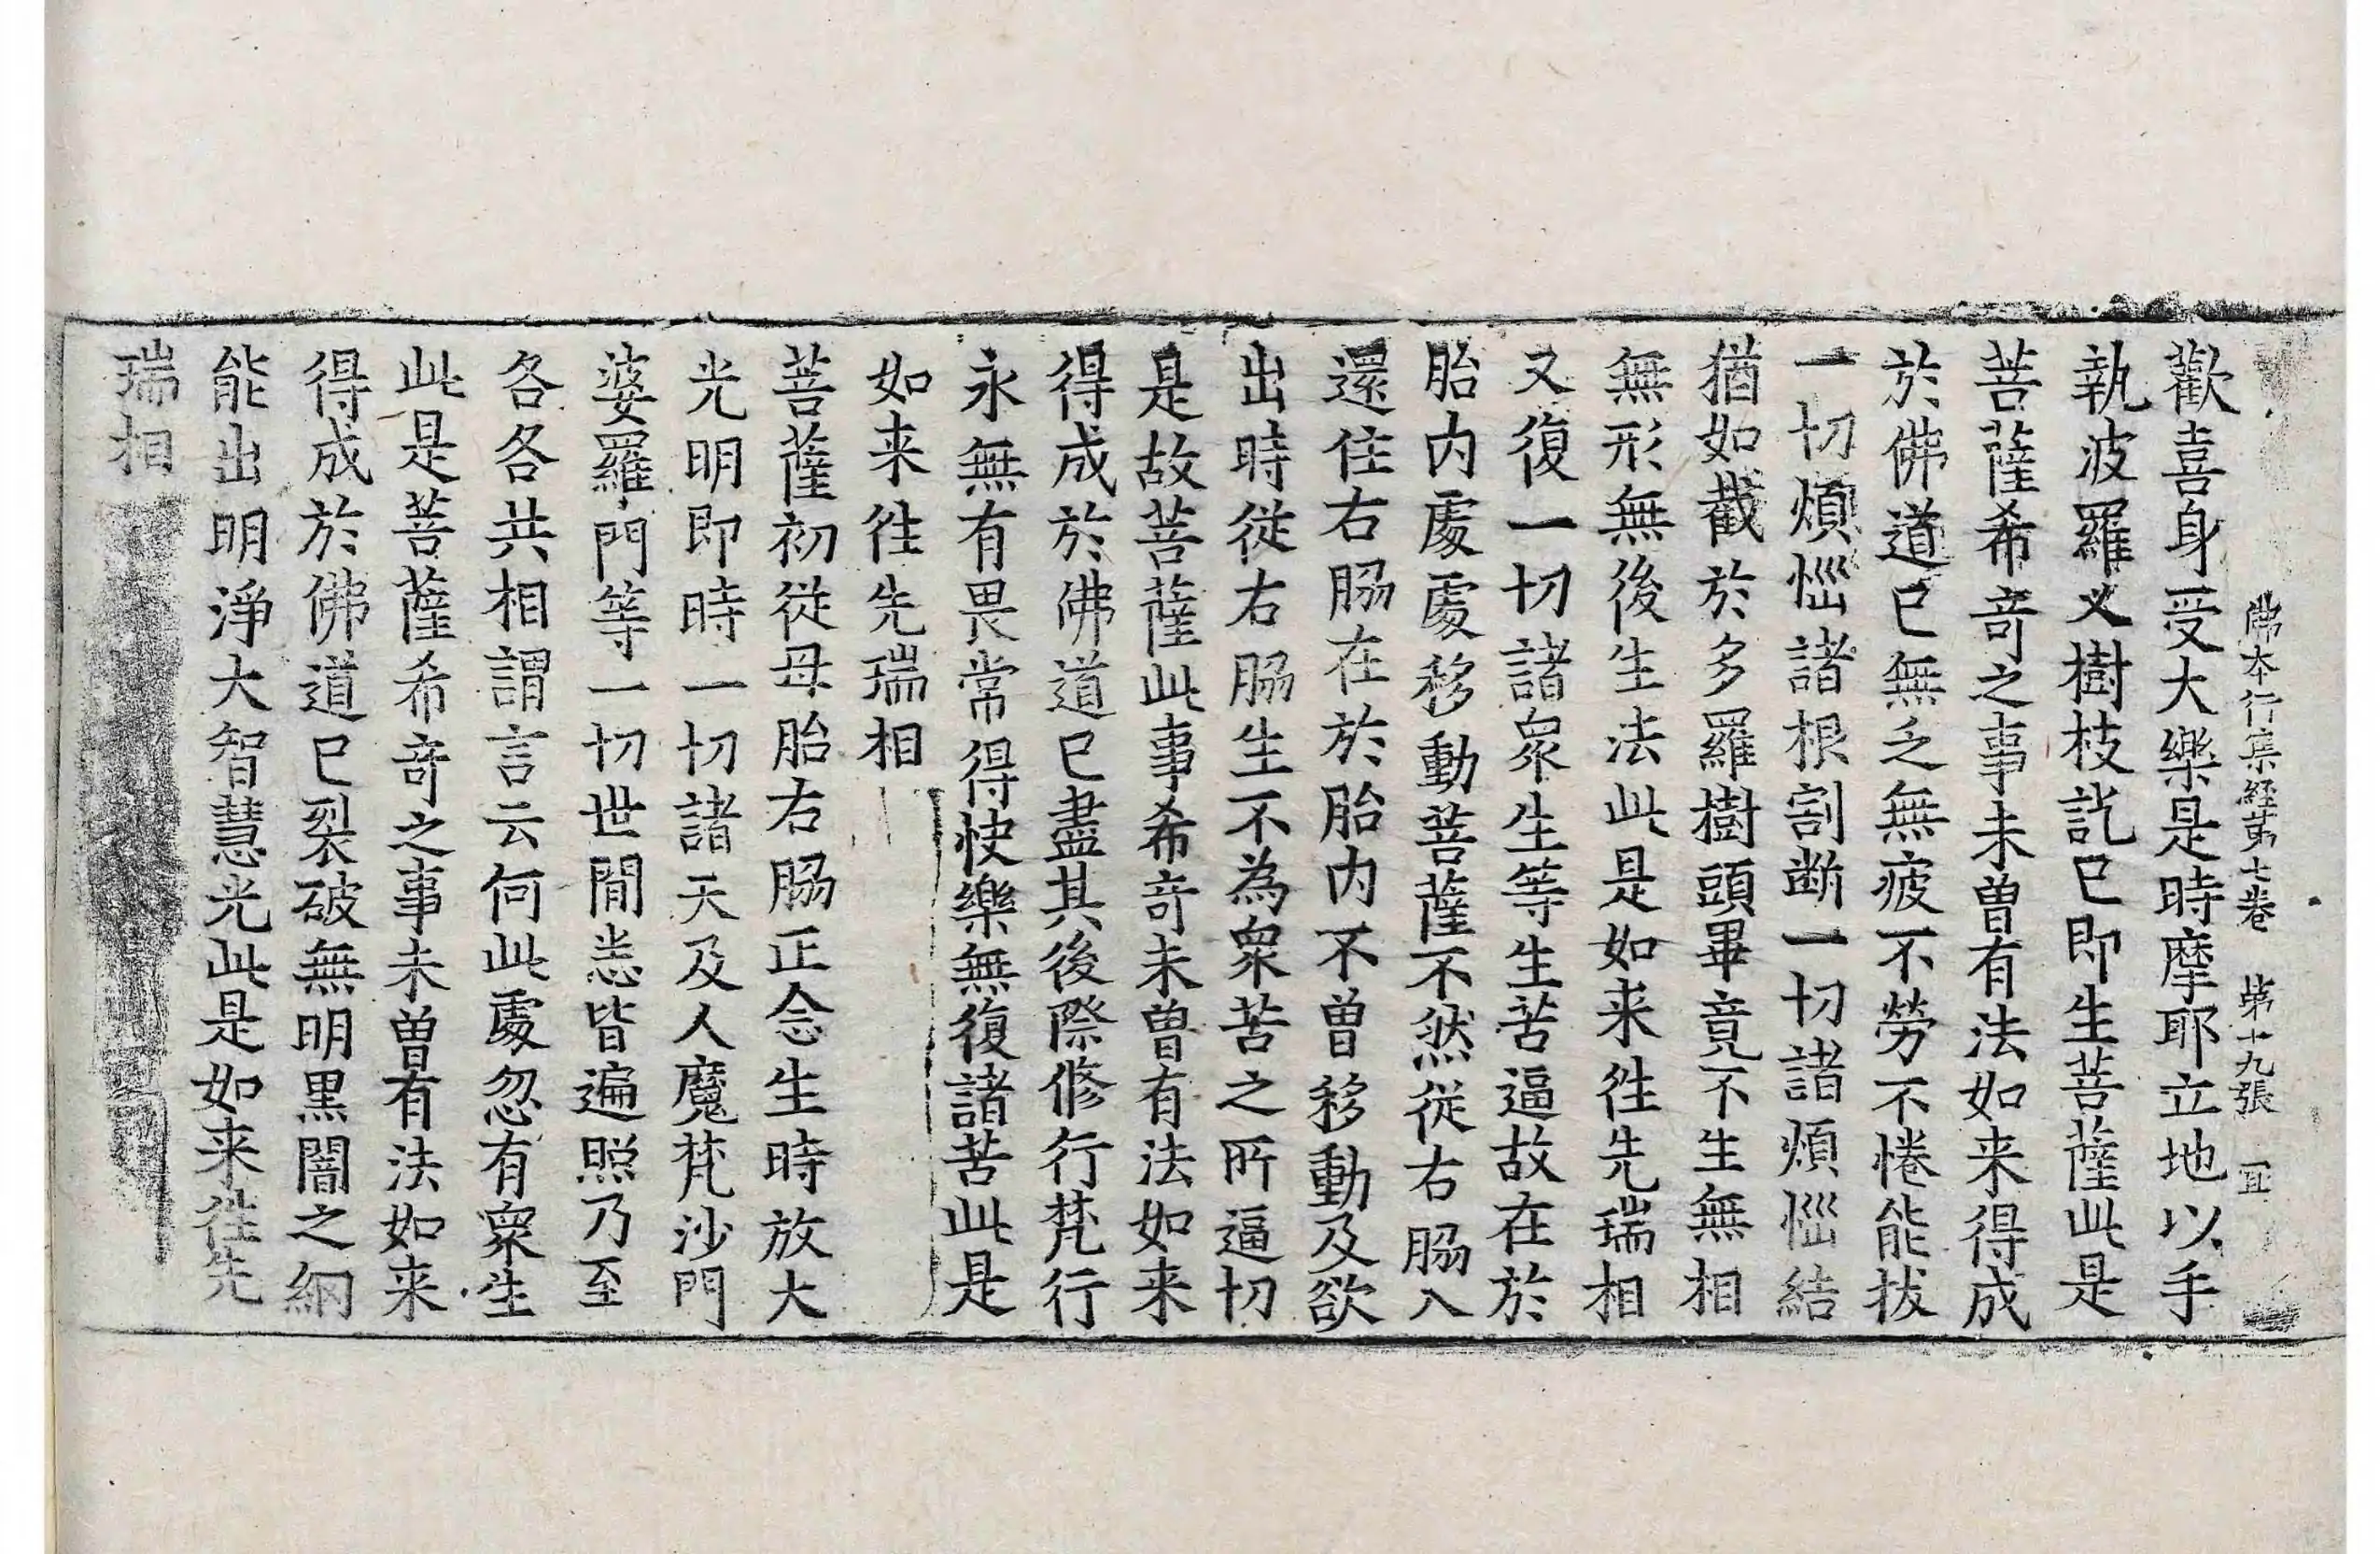 佛本行集経苐七卷 苐十九張 宜
歡喜身受大樂是時摩耶立地以手
執波羅叉樹枝訖已即生菩薩此是
菩薩希竒之事未曽有法如来得成
於佛道已無乏無疲不勞不惓能拔
一切煩惱諸根割断一切諸煩惱結
猶如截於多羅樹頭畢竟不生無相
無形無後生法此是如来徃先瑞相
又復一切諸衆生等生苦逼故在於
胎内處處移動菩薩不然從右脇入
還住右脇在於胎内不曽移動及欲
出時從右脇生不為衆苦之所逼切
是故菩薩此事希竒未曽有法如来
得成於佛道已盡其後際修行梵行
永無有畏常得快樂無復諸苦此是
如来徃先瑞相
菩薩初從母胎右脇正念生時放大
光明即時一切諸天及人魔梵沙門
婆羅門等一切世間悉皆遍照乃至
各各共相謂言云何此處忽有衆生
此是菩薩希竒之事未曽有法如来
得成於佛道已裂破無明黒闇之網
能出明淨大智慧光此是如来徃先
瑞相